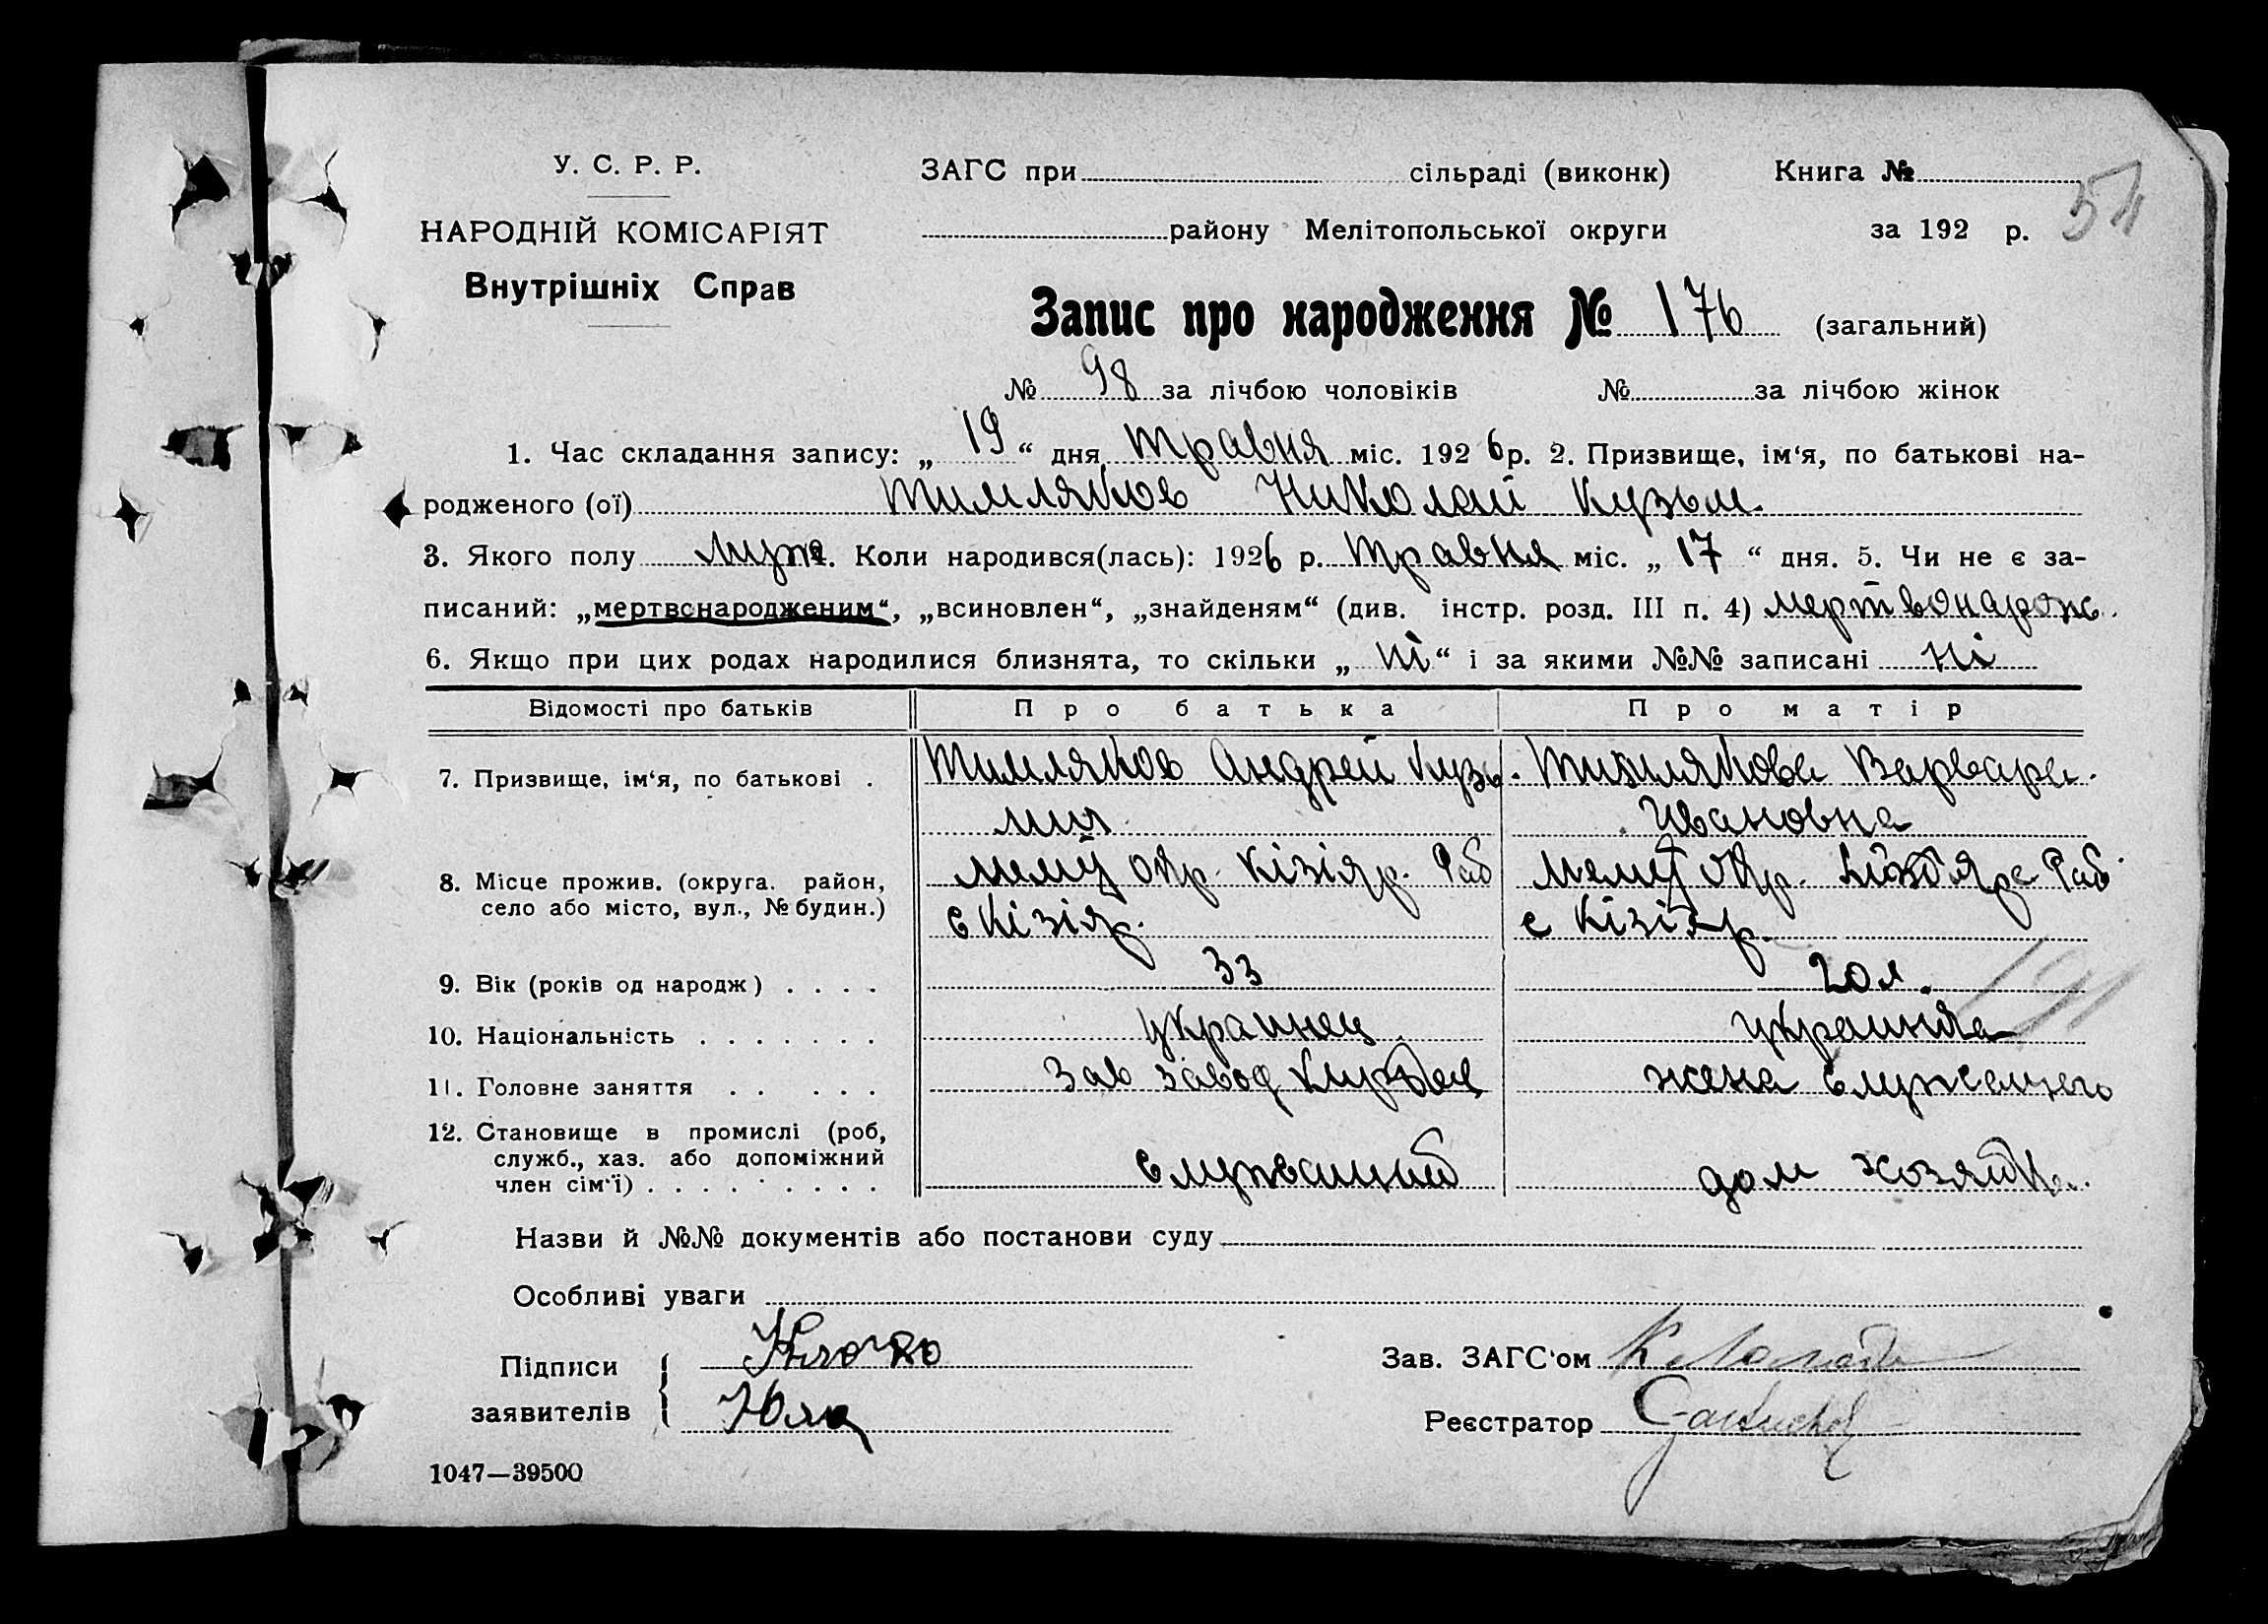 У. С. Р. Р.
НАРОДНІЙ КОМІСАРІЯТ
Внутрішніх Справ
ЗАГС при сільраді (виконк) Книга №
району Мелітопольської округи за 192 р.
54
Запис про народження № 176 (загальний)
№ 98 за лічбою чоловіків № за лічбою жінок
1. Час складання запису: „ 19 “ дня травня міс. 1926 р. 2. Призвище, ім‘я, по батькові на-
родженого (ої) Тимляков Николай Кузьм.
3. Якого полу муж 4. Коли народився(лась): 1926 р. травня міс. „ 17 “ дня. 5. Чи не є за-
писаний: „мертвонародженим“, „всиновлен“, „знайденям“ (див. інстр. розд. III п. 4) мертвонарож.
6. Якщо при цих родах народилися близнята, то скільки „ ні “ і за якими №№ записані ні
Відомості про батьків Про батька Про матір
7. Призвище, ім‘я, по батькові . Тимляков Андрей Кузь- Тимлякова Варвара
мич Ивановна
8. Місце прожив. (округа. район, Мелит окр. Кізіяр. Мелит окр.
село або місто, вул., № будин.) с Кізіяр. с Кізіяр.
9. Вік (років од народж) . . . . 33 20 л.
191
10. Національність . . . . . . . украинец украинка
11. Головне заняття . . . . . Зав завод жена служащего
12. Становище в промислі (роб,
служб., хаз. або допоміжний служащий дом хозяйка.
член сім‘ї) . . . . . . . . .
Назви й №№ документів або постанови суду
Особливі уваги
Підписи Зав. ЗАГС‘ом
заявителів Реєстратор
1047—39500